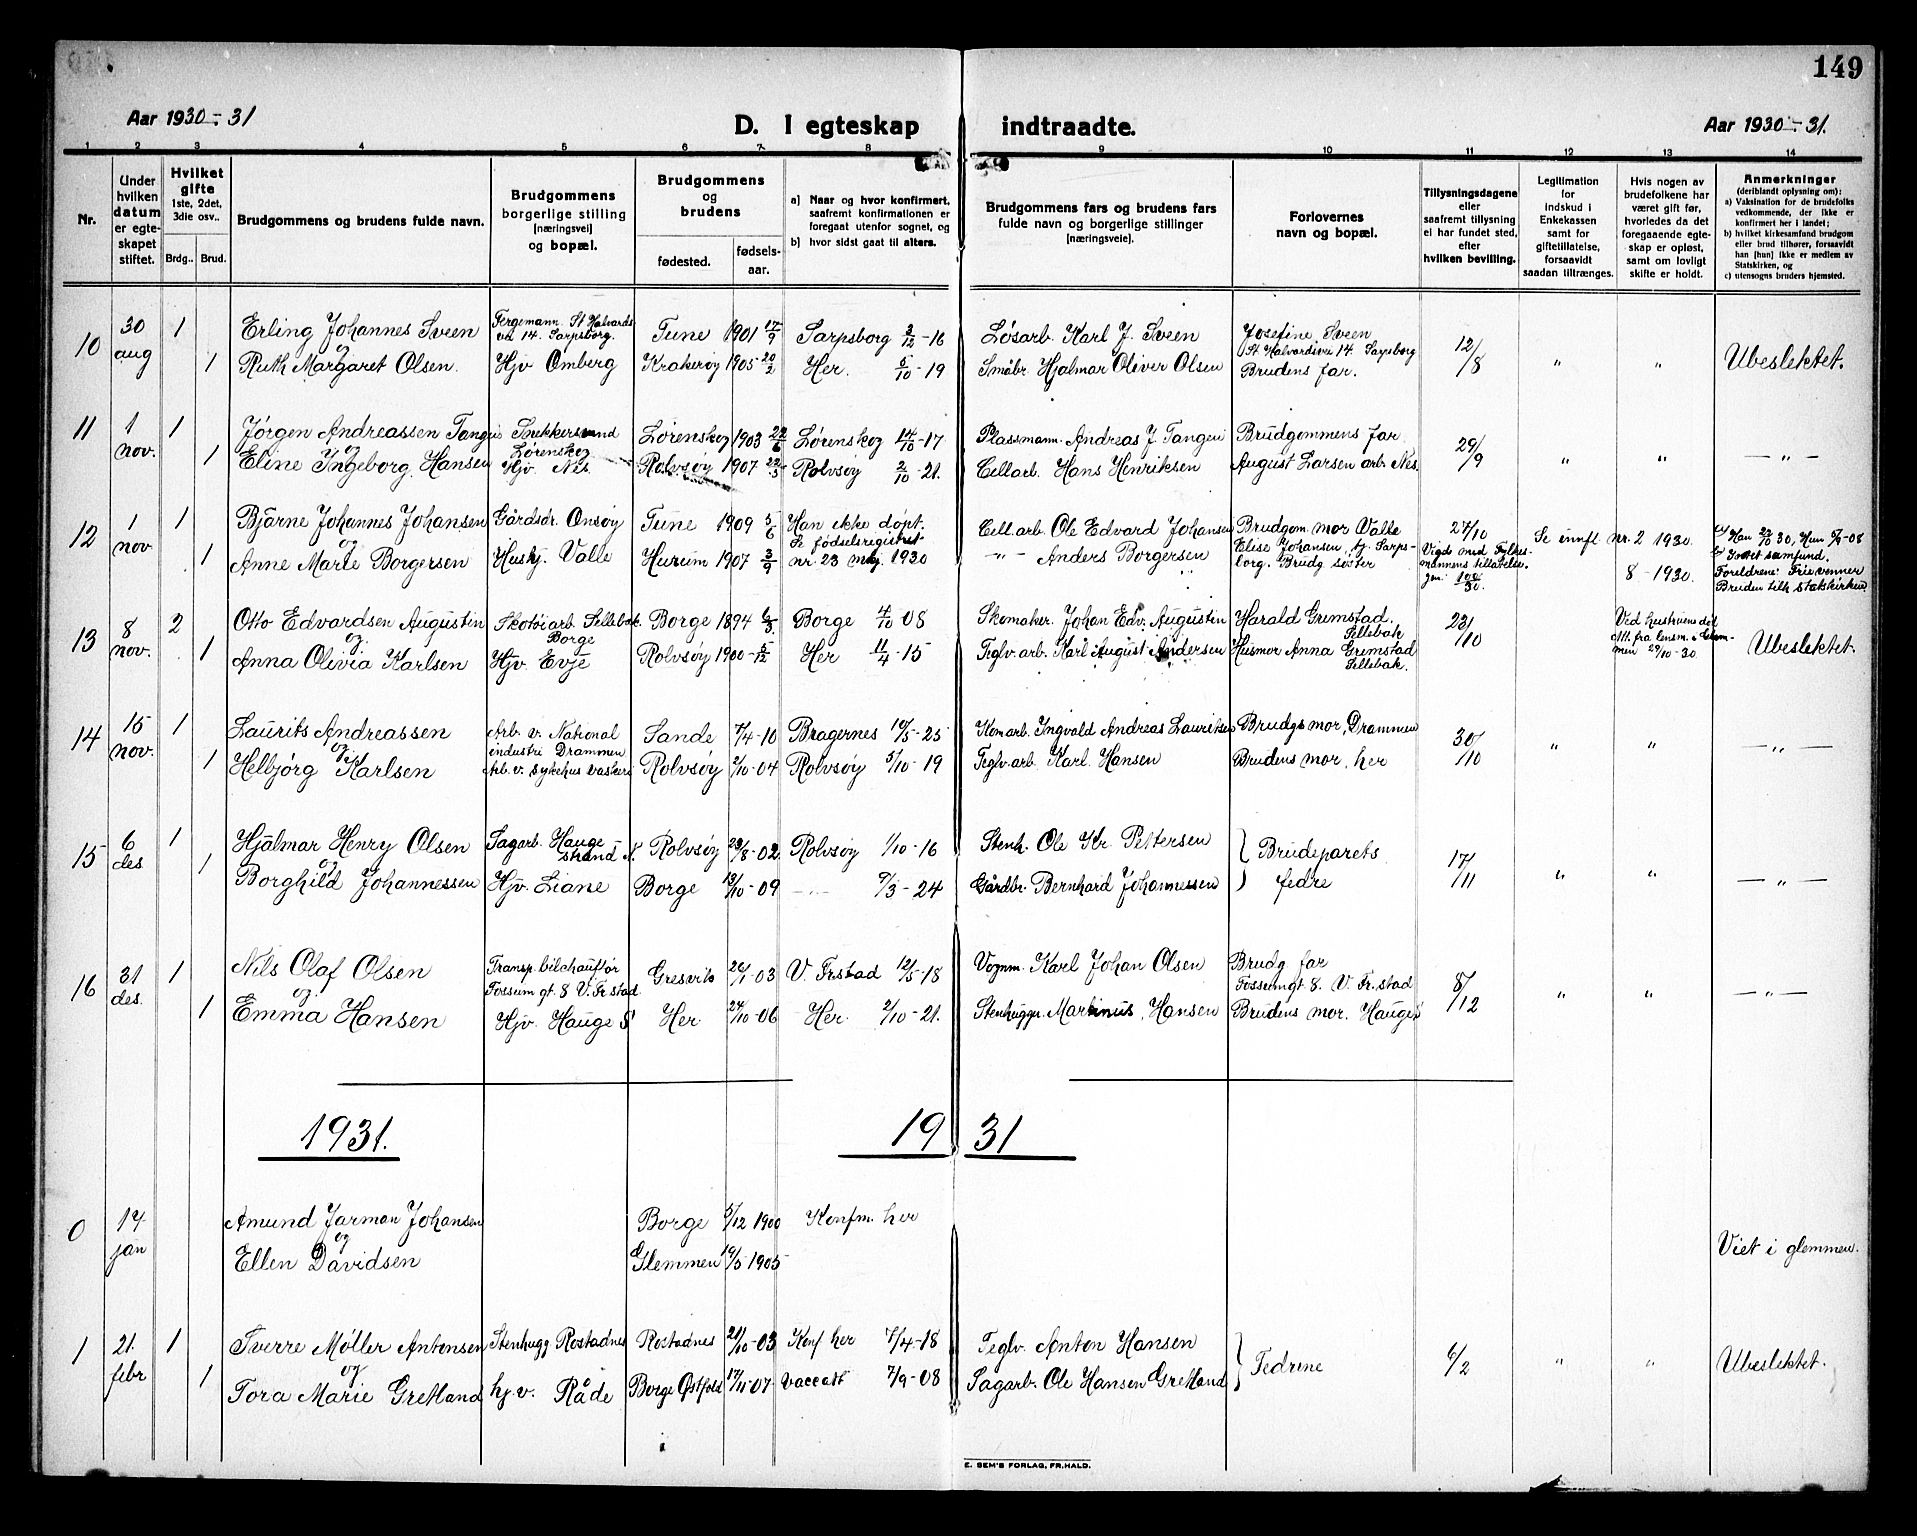 149
Aar 1930-31
D. I egteskap indtraadte.
Aar 1930-31.
1 2 3 4 5 6 7 8 9 10 11 12 13 14
Nr.
Under hvilken datum er egteskapet stiftet.
Hvilket gifte 1ste, 2det, 3die osv..
Brdg.. Brud.
Brudgommens og brudens fulde navn.
Brudgommens borgerlige stilling (næringsvei) og bopæl.
Brudgommens og brudens
fødested.
fødsels-aar.
a) Naar og hvor konfirmert, saafremt konfirmationen er foregaat utenfor sognet, og
b) hvor sidst gaat til alters.
Brudgommens fars og brudens fars fulde navn og borgerlige stillinger (næringsveie).
Forlovernes navn og bopæl.
Tillysningsdagene eller saafremt tillysning ei har fundet sted, efter hvilken bevilling.
Legitimation for indskud i Enkekassen samt for giftetillatelse, forsaavidt saadan tiltrænges.
Hvis nogen av brudefolkene har været gift før, hvorledes da det foregaaende egteskap er opløst, samt om lovligt skifte er holdt.
Anmerkninger (deriblandt oplysning om): a) Vaksination for de brudefolks vedkommende, der ikke er konfirmert her i landet; b) hvilket kirkesamfund brudgom eller brud tilhører, forsaavidt han [hun] ikke er medlem av Statskirken, og c) utensogns bruders hjemsted.
10 30 aug 1 Erling Johannes Sveen Fergemann. St Halvards vei 14. Sarpsborg. Tune 1901 17/9 Sarpsborg 2/10-16 Løsarb. Karl J. Sveen Josefine Sveen St. Halvardsvei 14. Sarpsborg 12/8 " " Ubeslektet.
og
1 Ruth Margaret Olsen. Hjv Omberg Krakerøy 1905 20/2 Her. 5/10-19 Småbr. Hjalmar Oliver Olsen Brudens far.
11 1 nov. 1 Jørgen Andreassen Tangen Snekkersvend Lørenskog Lørenskog 1903 22/6 Lørenskog 14/10-17 Plassmann. Andreas J. Tangen Brudgommens far 29/9 " " — " —
og
1 Eline Ingeborg Hansen Hjv. Nes. Rolvsøy 1907 22/5 Rolvsøy 2/10-21. Cellarb. Hans Henriksen August Larsen arb. Nes.
12 1 nov 1 Bjarne Johannes Johansen Gårdsar. Onsøy Tune 1909 5/6 Han ikke døpt. Se fødselsregistret nr. 23 1930 Cell. arb. Ole Edvard Johansen Brudgom. mor Valle 27/10 Se innf. nr. 2 1930. 8-1930.
og
1 Anne Marie Borgersen Huskj. Valle Hurum 1907 3/9 - " - Anders Borgersen Elise Johansen, Sarpsborg. Brudg søster Vigd med Fylkesmannens tillatelse. 100/30.
samfund. Foreldrene: Frievenner Bruden tilh statskirken
13 8 nov. 2 Otto Edvardsen Augustin Skotøiarb. Sellebak. Borge Borge 1894 6/3 Borge 4/10 08 Skomaker. Johan Edv. Augustin Harald Gremstad. Sellebak 23/10 Ved hustruens død Att. fra lensm. i Glemmen 29/10-30 Ubeslektet.
og
1 Anna Olivia Karlsen Hjv. Evje Rolvsøy 1900 - 5/12 Her 11/4-15 Teglv. arb. Karl August Andersen Husmor Anna Gremstad Sellebak.
14 15 nov. 1 Laurits Andreassen Arb. v. National industri Drammen Sande 7/4-10 Bragernes 10/5-25 Kom arb. Ingvald Andreas Lauritsen Brudgs mor, Drammen 30/10 " " — " —
og
1 Helbjørg Karlsen Arb. v. Sykehus vaskeri Rolvsøy 2/10-04 Rolvsøy 5/10-19 Teglv. arb. Karl Hansen Brudens mor, her
15 6 des 1 Hjalmar Henry Olsen Sagarb. Haugestrand N. Rolvsøy 23/8-02 Rolvsøy 1/10-16 Stenh. Ole Kr. Pettersen Brudeparets fedre 17/11 " " — " —
og
1 Borghild Johannessen Hjv. Liane Borge 13/10-09 9/3-24 Gårdbr. Bernhard Johannessen
16 31 des. 1 Nils Olaf Olsen Transp. bilchauffør Fossum gt. 8 V. Fr stad Gresvik 26/1-03 V. Frstad 12/5-18 Vognm. Karl Johan Olsen Brudg far Fossumgt 8. V. Fr. stad 8/12 " " — " —
og
1 Emma Hansen Hjv. Hauge S. Her 24/10-06 Her. 2/10-21. Stenhugger. Martinus Hansen Brudens mor. Hauge S
1931. 1931
0 17 jan Amund Jarman Johansen Borge 6/12 1900 Konfm. her
og
Ellen Davidsen Glemmen 19/5 1905 Viet i glemmen.
1 21. febr 1 Sverre Møller Antonsen Stenhugg Rostadnes Rostadnes 21/10-03 Konf her 7/4-18 Teglv. Anton Hansen Fedrene 6/2 " " Ubeslektet.
og
1 Tora Marie Gretland hj. v. Råde Borge Østfold 17/11-07 vaccatt 7/9-08 Sagarb. Ole Hansen Gretland
E. SEM'S FORLAG, FR.HALD.